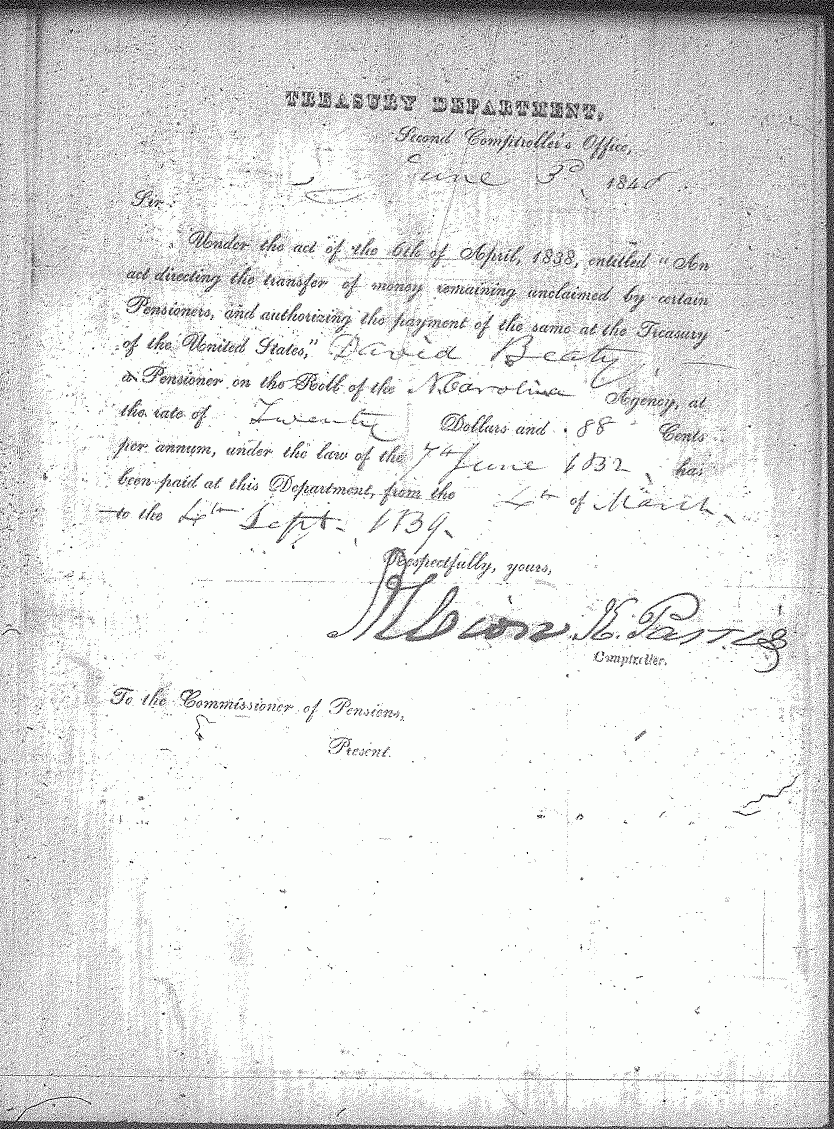 TREASURY DEPARTMENT,
Second Comptroller's Office,
June 3d, 184
Sir:
Under the act of the 6th of April, 1838, entitled "An
act directing the transfer of money remaining unclaimed by certain
Pensioners, and authorizing the payment of the same at the Treasury
of the United States," David Beaty
a Pensioner on the Roll of the N Carolina Agency, at
the rate of Twenty Dollars and 88 Cents
per annum, under the law of the 7th June 1832, has
been paid at this Department, from the 4th of March
to the 4th Sept. 1839.
Respectfully, yours,
Albion K. Parris
Comptroller.
To the Commissioner of Pensions,
Present.